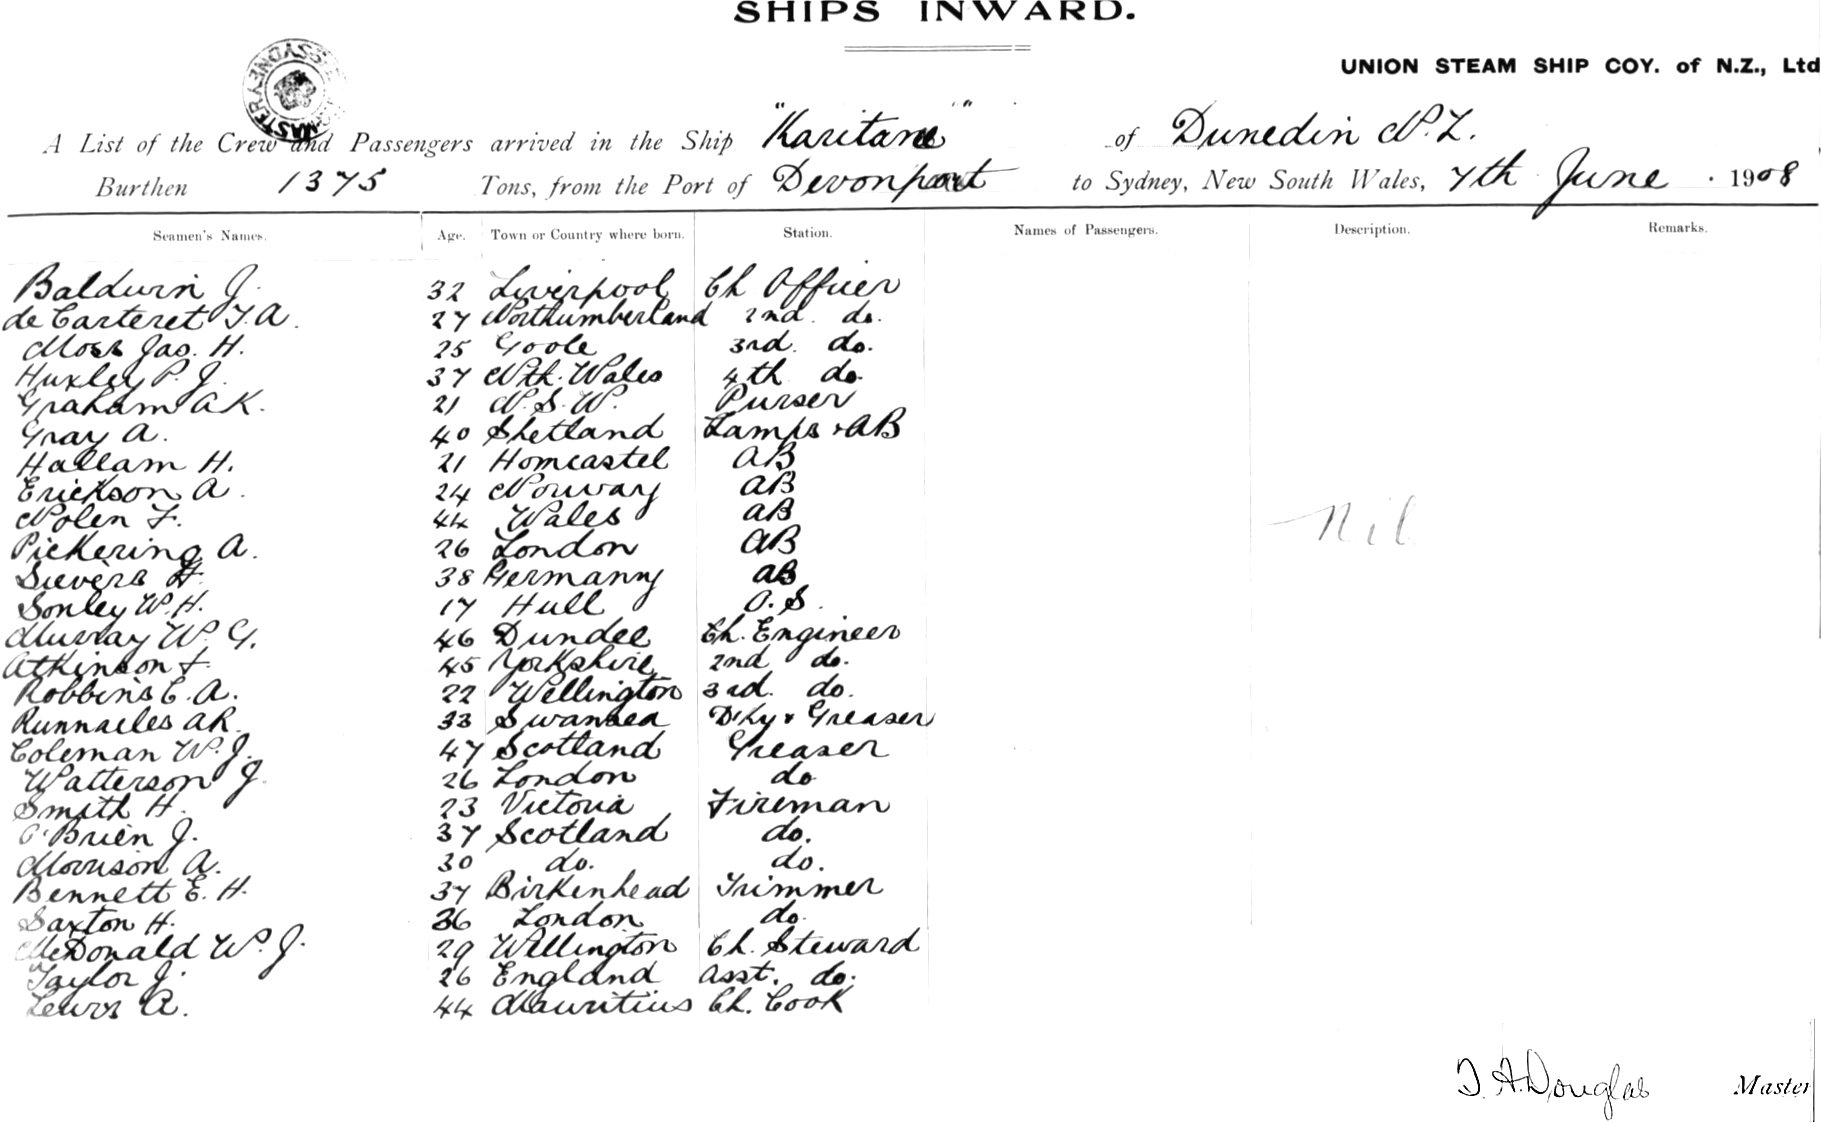 SHIPS INWARD.
UNION STEAM SHIP COY. of N.Z., Ltd
A List of the Crew and Passengers arrived in the Ship "Karitane" of Dunedin N.Z.
Burthen 1375 Tons, from the Port of Devonport to Sydney, New South Wales, 7th June 1908
Seamen's Names. Age. Town or Country where born. Station. Names of Passengers. Description. Remarks.
Baldwin J. 32 Liverpool Ch Officer
de Carteret T. A. 27 Northumberland 2nd. do.
Moss Jas. H. 25 Goole 3rd. do.
Huxley P. J. 37 Nth. Wales 4th do.
Graham A K. 21 N. S. W. Purser
Gray A. 40 Shetland Lamps & AB
Hallam H. 21 Horncastel AB
Erickson A. 24 Norway AB
Nolen F. 44 Wales AB
Nil
Pickering A. 26 London AB
Sievers H. 38 Germany AB
Sonley W. H. 17 Hull O. S.
Murray W. G. 46 Dundee Ch. Engineer
Atkinson J. 45 Yorkshire 2nd do.
Robbins C. A. 22 Wellington 3rd. do.
Runnacles AR. 33 Swansea D'ky & Greaser
Coleman W. J. 47 Scotland Greaser
Watterson J. 26 London do
Smith H. 23 Victoria Fireman
O'Brien J. 37 Scotland do.
Morrison A. 30 do. do.
Bennett E. H. 37 Birkenhead Trimmer
Saxton H. 36 London do.
McDonald W. J. 29 Wellington Ch. Steward
Taylor J. 26 England Asst. do.
Lewis A. 44 Mauritius Ch. Cook
T. A. Douglas Master